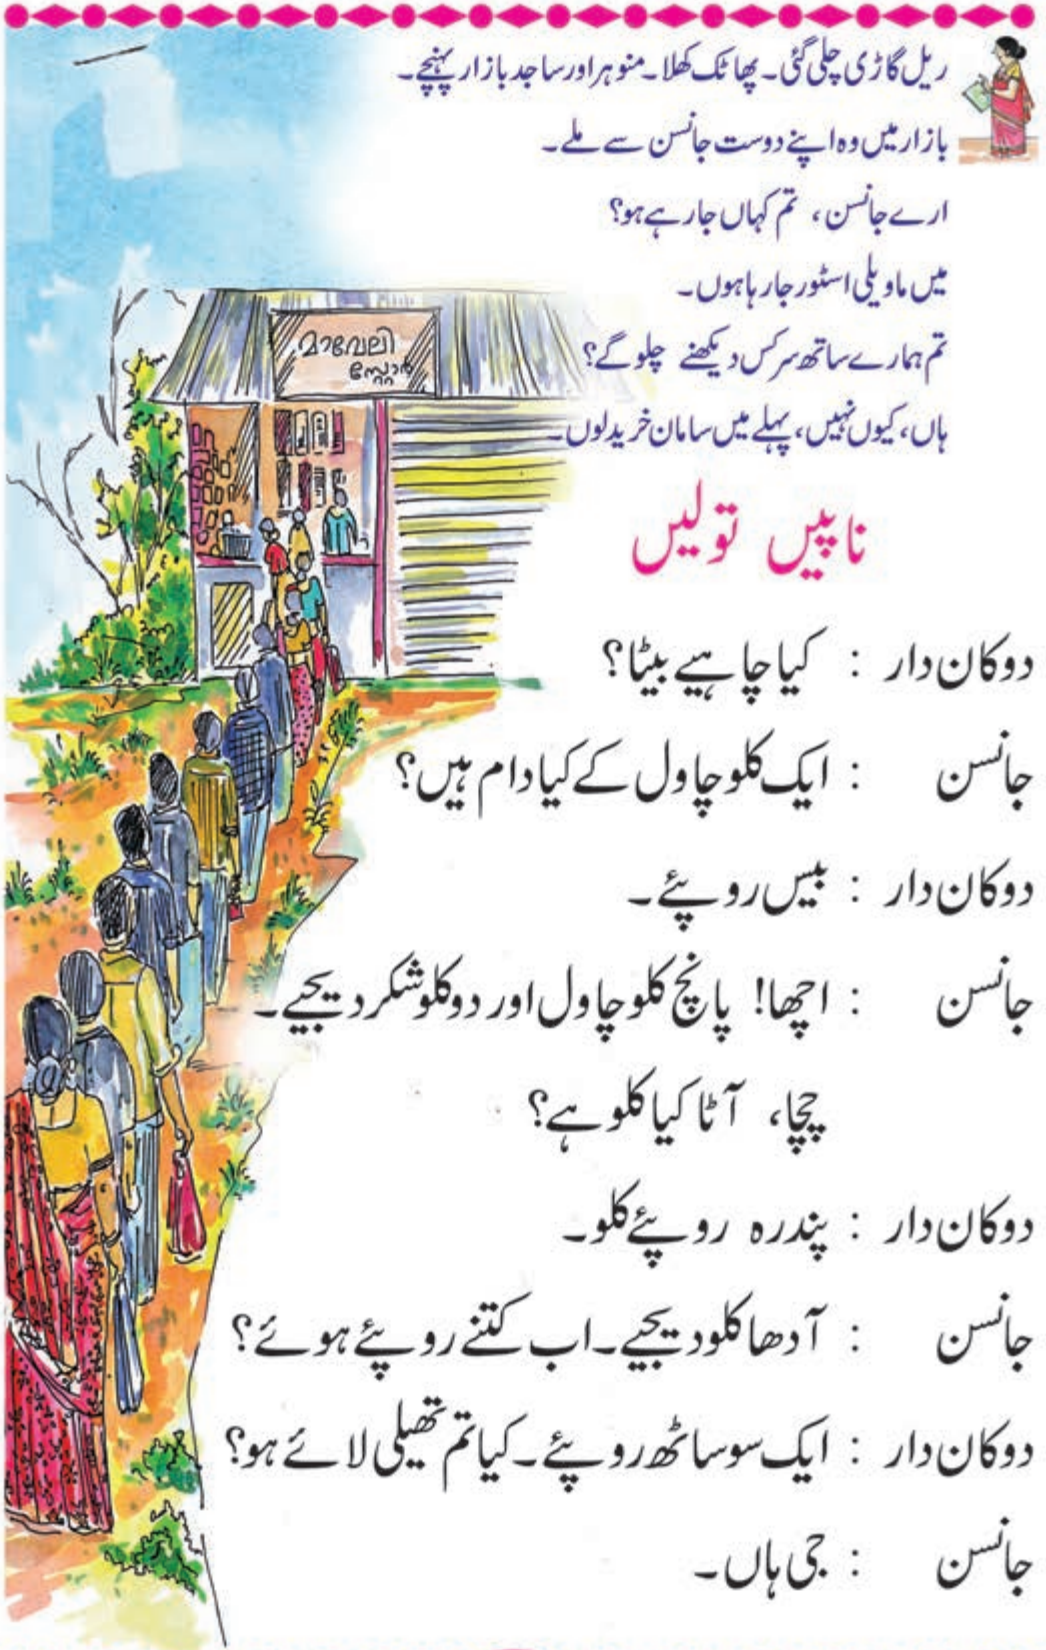 ریل گاڑی چلی گئی۔ پھاٹک کھلا۔ منوہر اور ساجد بازار پہنچے۔
بازار میں وہ اپنے دوست جانسن سے ملے۔
ارے جانسن، تم کہاں جا رہے ہو؟
میں ماویلی اسٹور جا رہا ہوں۔
تم ہمارے ساتھ سرکس دیکھنے چلو گے؟
ہاں، کیوں نہیں، پہلے میں سامان خرید لوں۔
മാവേലി
സ്റ്റോർ
ناپیں تولیں
دوکان دار : کیا چاہیے بیٹا؟
جانسن : ایک کلو چاول کے کیا دام ہیں؟
دوکان دار : بیس روپئے۔
جانسن : اچھا! پانچ کلو چاول اور دو کلو شکر دیجیے۔
چچا، آٹا کیا کلو ہے؟
دوکان دار : پندرہ روپئے کلو۔
جانسن : آدھا کلو دیجیے۔ اب کتنے روپئے ہوئے؟
دوکان دار : ایک سو ساٹھ روپئے۔ کیا تم تھیلی لائے ہو؟
جانسن : جی ہاں۔